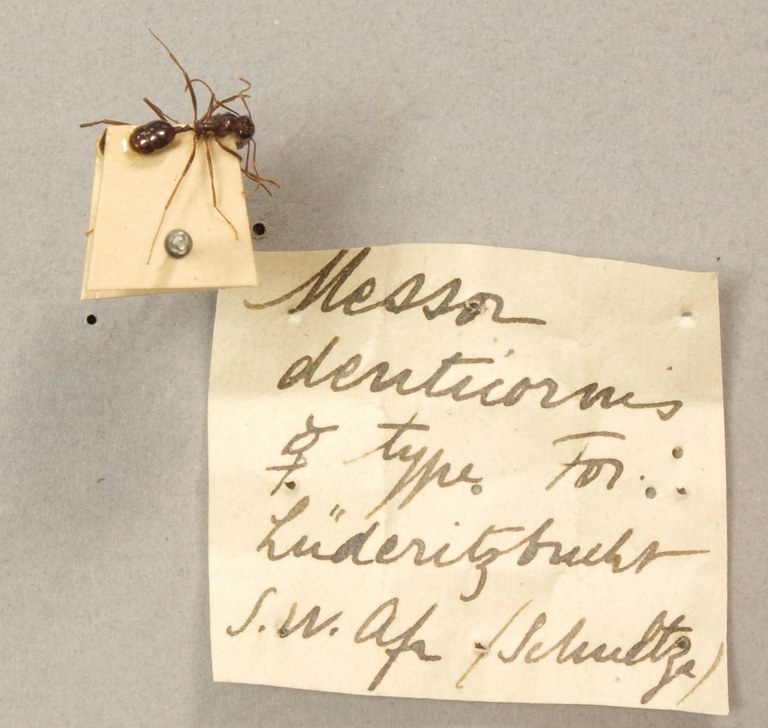 Messor
denticornis
☿ type. For:
Lüderitzbucht
S. W. Afr (Schultze)